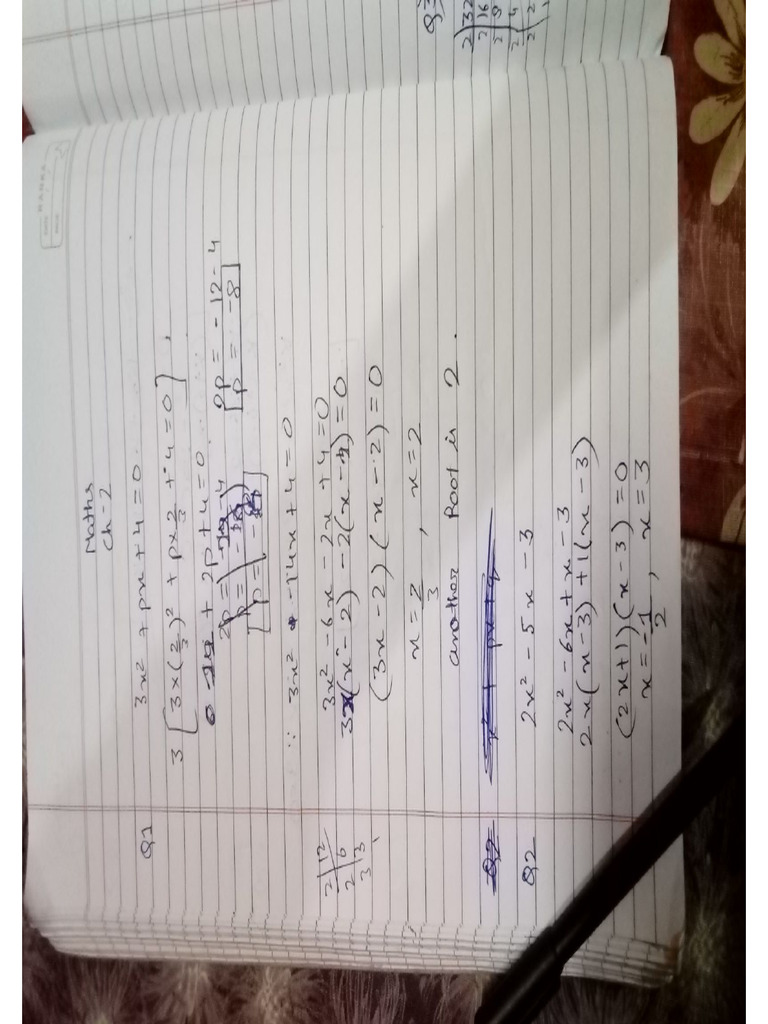 Maths
Ch-2
Q1 3x² + px + 4 = 0
3 [ 3 x (2/3)² + p x 2/3 + 4 = 0 ]
+ 2p + 4 = 0
2p = -12 - 4
[ p = -8 ]
∵ 3x² - 14x + 4 = 0
3x² - 6x - 2x + 4 = 0
3x(x - 2) - 2(x - 2) = 0
(3x - 2) (x - 2) = 0
x = 2/3 , x = 2
another Root is 2.
2 | 12
2 | 6
3 | 3
Q2 2x² - 5x - 3
2x² - 6x + x - 3
2x(x - 3) + 1(x - 3)
(2x + 1) (x - 3) = 0
x = -1/2 , x = 3
2 | 32
2 | 16
2 | 8
2 | 4
2 | 2